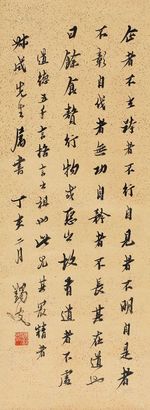 企者不立跨者不行自見者不明自是者
不彰自伐者無功自矜者不長其在道也
曰餘食贅行物或惡之故有道者不處
道德五千言以此其最精者
成先生屬書 丁亥二月 蠲叟